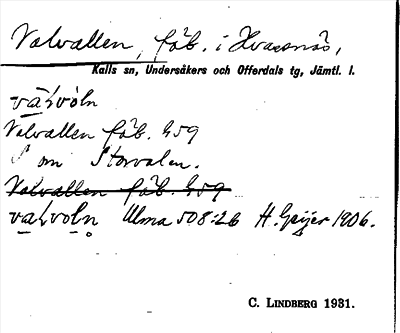 Valvallen, fäb. i Hvassnäs,
Kalls sn, Undersåkers och Offerdals tg, Jämtl. l.
vaḷvoln
Valvallen fäb. G59
S om Storvalen.
Valvallen fäb. G59
vaḷvoln Ulma 508:26 H. Geijer 1906.
C. LINDBERG 1931.